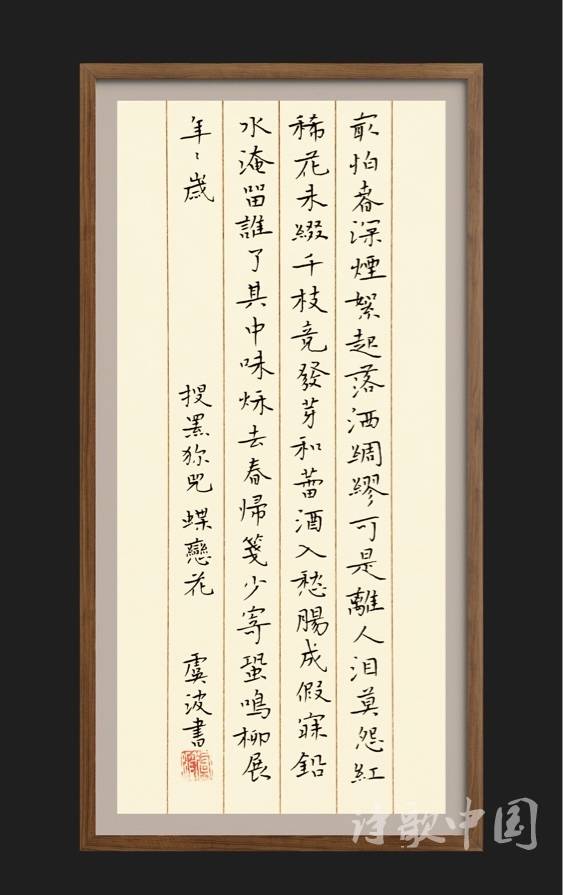 最怕春深煙絮起落洒綢繆可是離人泪莫怨紅
稀花未綴千枝竞發芽和蕾酒入愁腸成假寐鉛
水淹留誰了其中味秌去春帰箋少寄蛩鳴柳展
年〻歲
黑猕兒蝶戀花
虞波書
诗歌中国